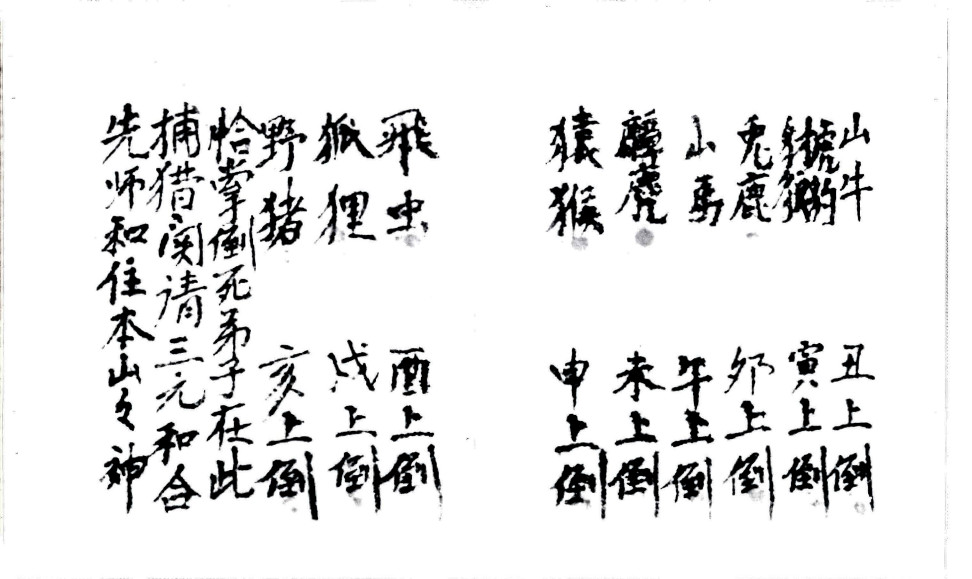 山牛 丑上倒
寅上倒
兎鹿 卯上倒
山馬 午上倒
麞麂 未上倒
猿猴 申上倒
飛虫 酉上倒
狐狸 戌上倒
野猪 亥上倒
恰掌倒死弟子在此
捕猎関请三元和合
先师和住本山々神